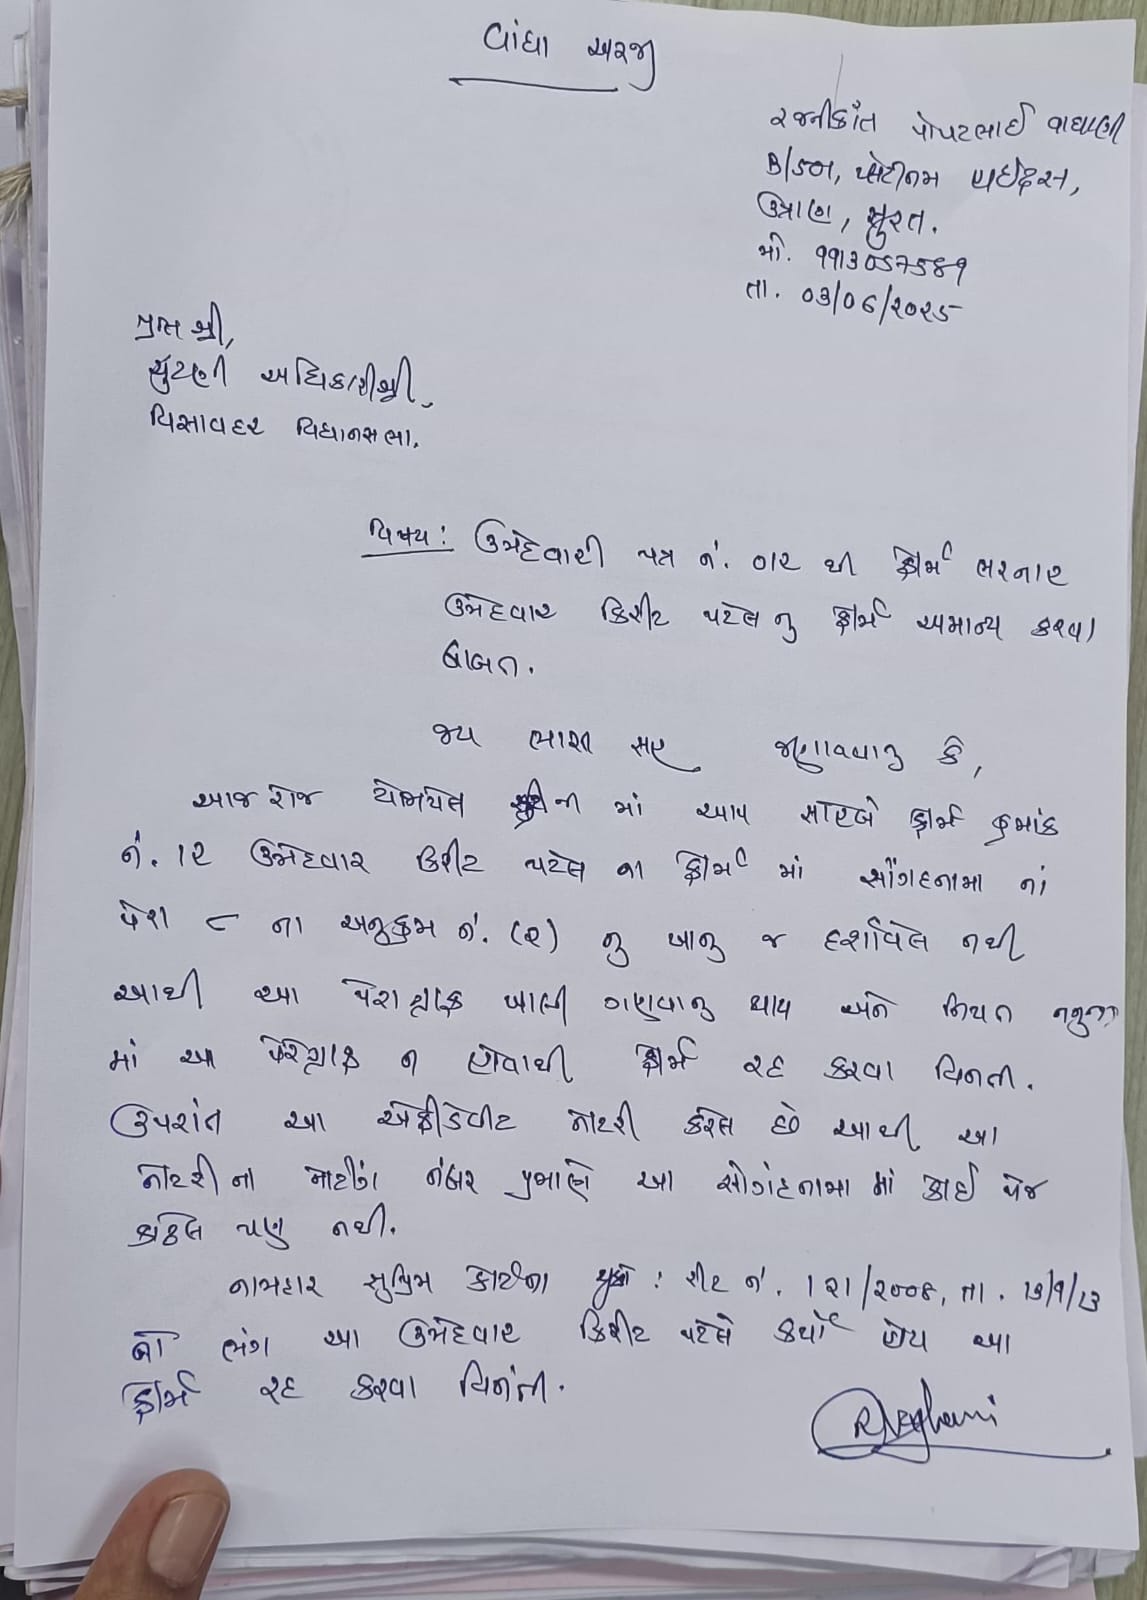 વાંધા અરજી
રજનીકાંત પોપટભાઈ વાઘાણી
B/302, પ્લેટીનમ હાઈટ્સ,
ઉત્રાણ, સુરત.
મો. ૧૧૩૦૫૭૫૪૧
તા. ૦૩/૦૬/૨૦૨૫
પ્રતિ શ્રી,
ચુંટણી અધિકારીશ્રી,
વિસાવદર વિધાનસભા.
વિષય: ઉમેદવારી પત્ર નં. ૦૧૨ થી ફોર્મ ભરનાર
ઉમેદવાર કિરીટ પટેલ નુ ફોર્મ અમાન્ય કરવા
બાબત.
જય સાથ સર જણાવવાનુ કે,
આજ રોજ યોજાયેલ ની માં આપ સાહેબે ફોર્મ ક્રમાંક
નં. ૧૨ ઉમેદવાર કિરીટ પટેલ ના ફોર્મ માં સોંગદનામા નાં
પેરા ૮ ના અનુક્રમ નં. (૨) નુ ખાનુ જ દર્શાવેલ નથી
આથી આ પેરાગ્રાફ ખાલી ગણવાનુ થાય અને નિયત નમુના
માં આ પેરેગ્રાફ ન હોવાથી ફોર્મ રદ કરવા વિનંતી.
ઉપરાંત આ એફીડેવીટ નોટરી કરેલ છે આથી આ
નોટરી ના નોટીંગ નંબર પ્રમાણે આ સોગંદનામા માં કોઈ પેજ
કરેલ પણ નથી.
નામદાર સુપ્રિમ કોર્ટના : રીટ નં. ૧૨૧/૨૦૦૮, તા. ૧૩/૧/૧૩
નો ભંગ આ ઉમેદવાર કિરીટ પટેલે કર્યો હોય આ
ફોર્મ રદ કરવા વિનંતી.
RVaghani